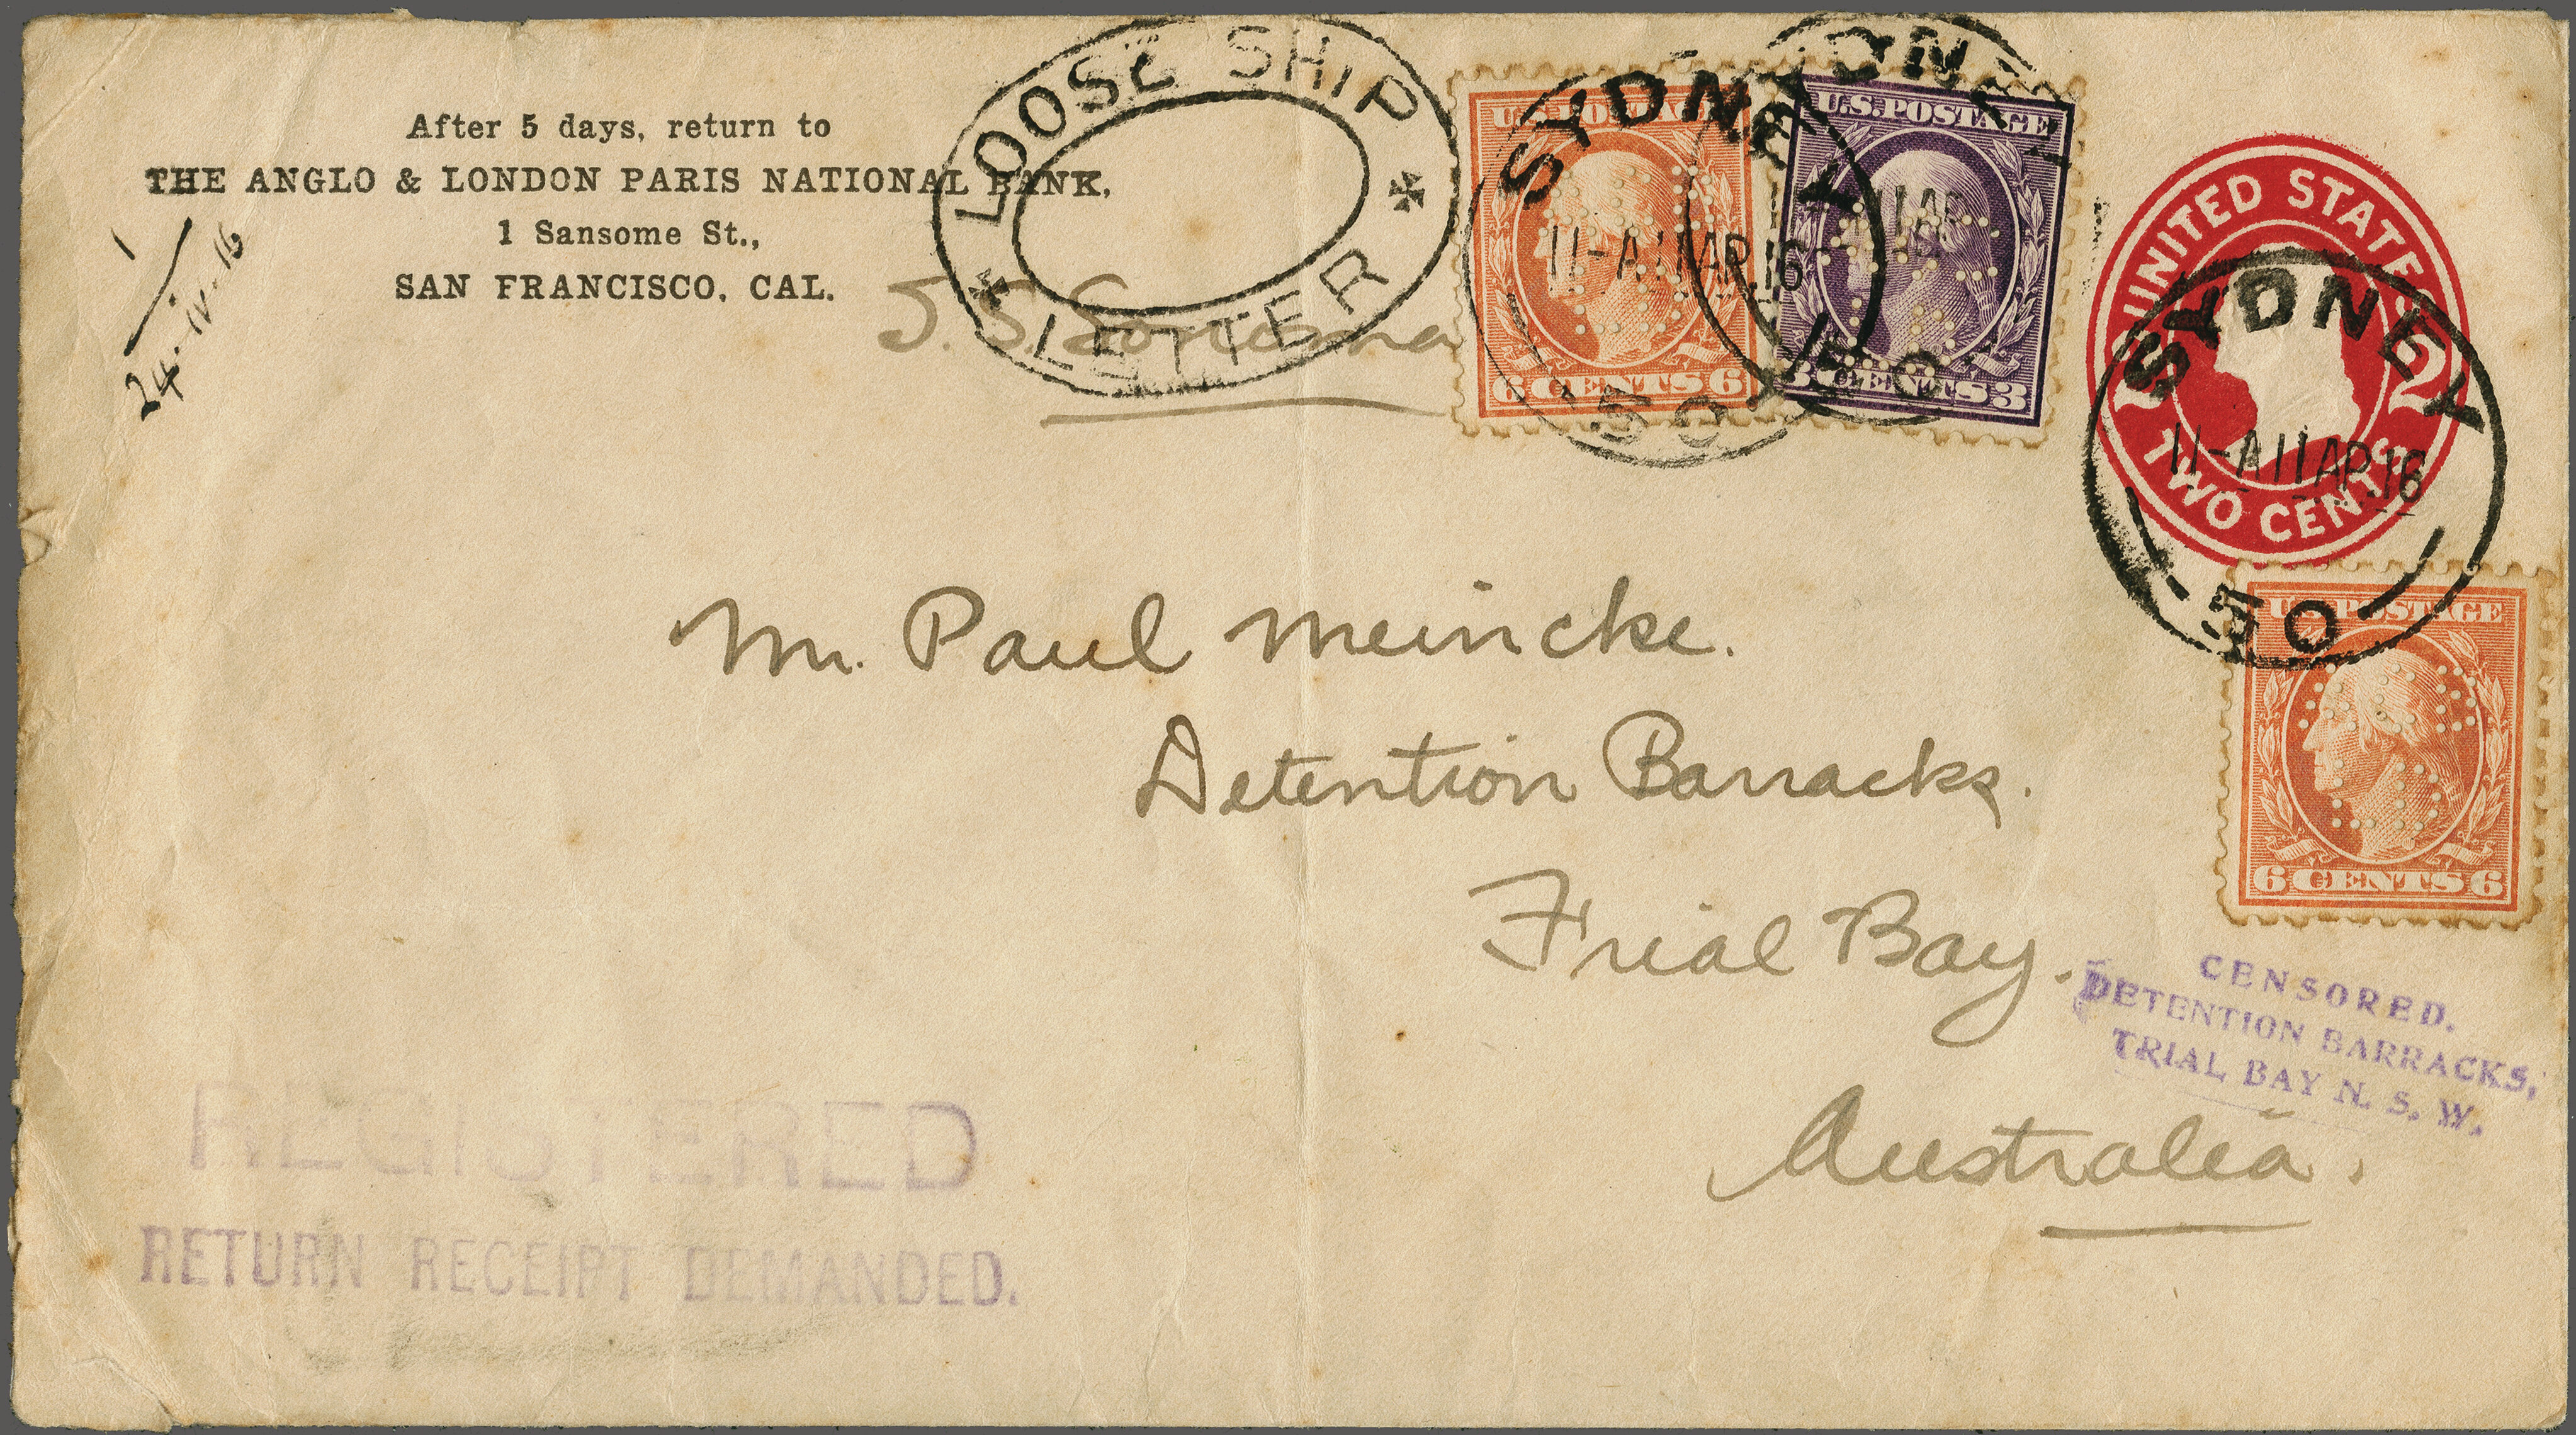 After 5 days, return to
THE ANGLO & LONDON PARIS NATIONAL BANK,
1 Sansome St.,
SAN FRANCISCO, CAL.
1
24-IV-16
LOOSE SHIP
LETTER
S.S. Sonoma
U.S. POSTAGE
6 CENTS 6
SYDNEY
11-A 11 AP. 16
50
U.S. POSTAGE
3 CENTS 3
SYDNEY
11 AP
50
UNITED STATES
2 2
TWO CENTS
SYDNEY
11-A 11 AP. 16
50
U.S. POSTAGE
6 CENTS 6
Mr. Paul Meincke.
Detention Barracks.
Trial Bay.
Australia.
CENSORED.
DETENTION BARRACKS,
TRIAL BAY N. S. W.
REGISTERED
RETURN RECEIPT DEMANDED.